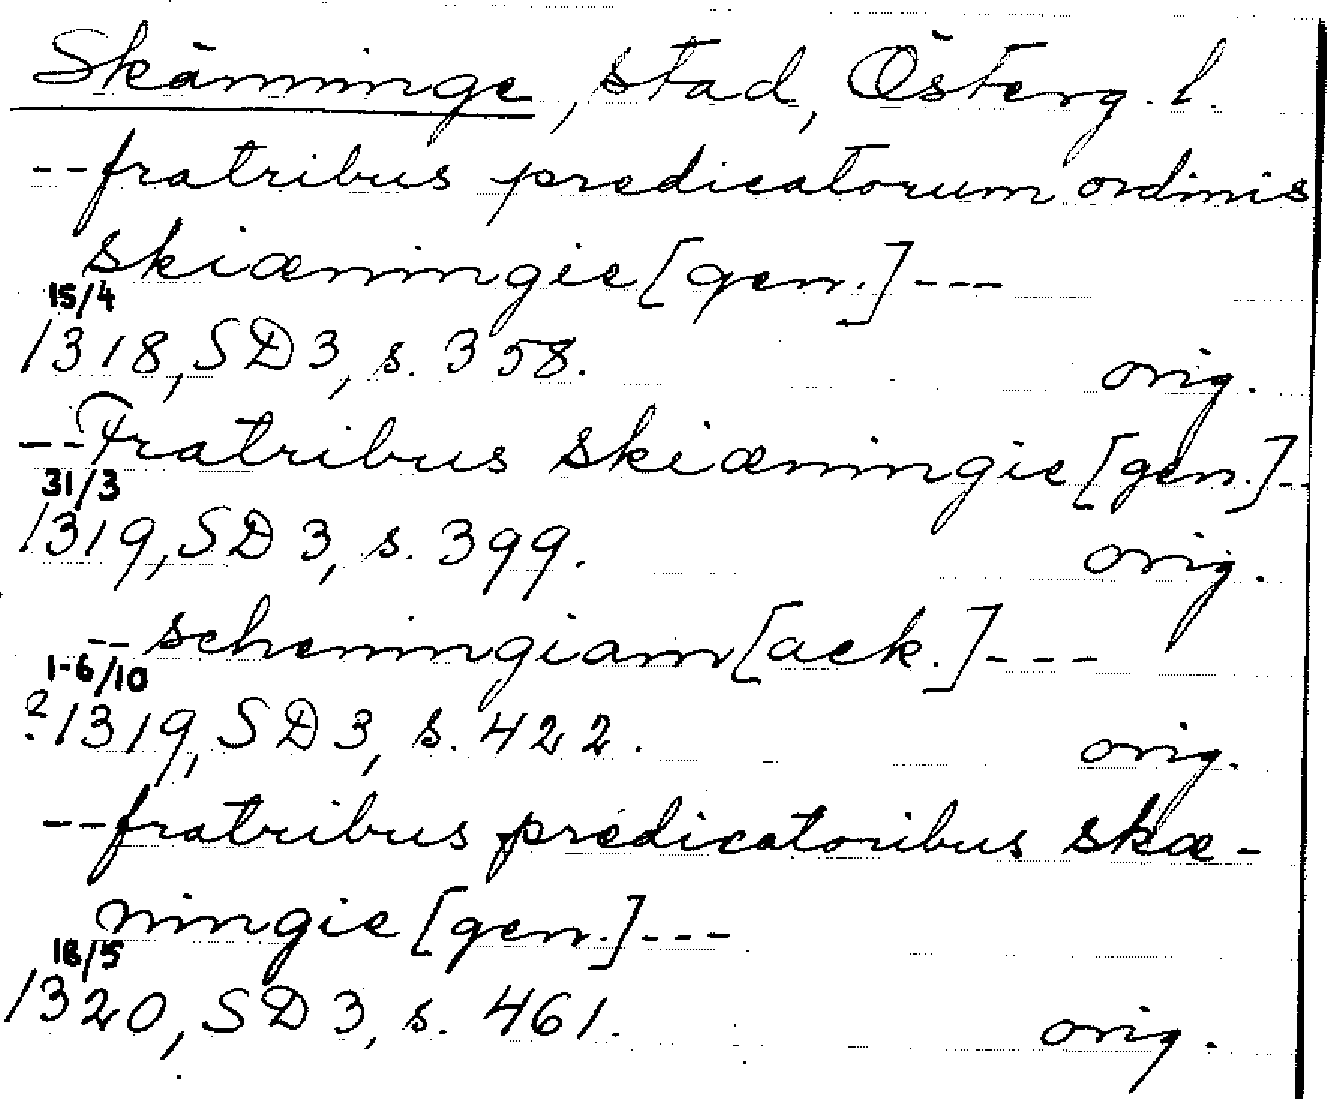 Skänninge, stad, Österg. l.
--fratribus predicatorum ordinis
skiæningie [gen.]---
15/4
1318, SD 3, s. 358. orig.
--Fratribus skiæningie [gen.]--
31/3
1319, SD 3, s. 399. orig.
--scheningiam [ack.]---
1-6/10
?1319, SD 3, s. 422. orig.
--fratribus predicatoribus skæ-
ningie [gen.]---
18/5
1320, SD 3, s. 461. orig.